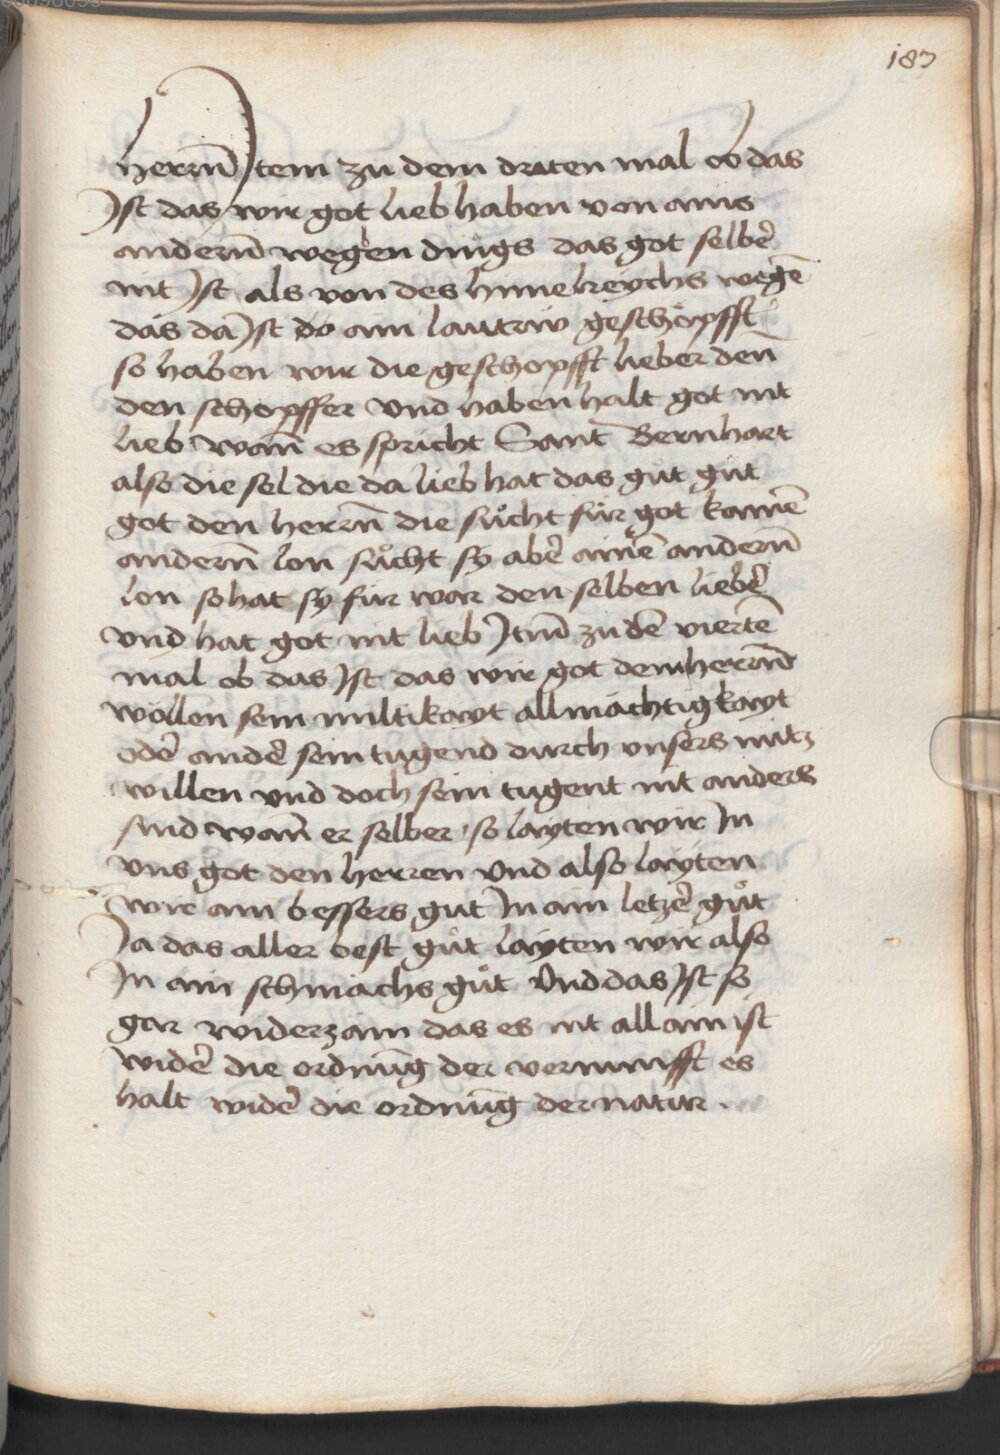 183
herrn̄ Item zu dem driten mal ob das
Ist das wir got lieb haben von ains
andern̄ wegen dings das got selbe᷑
nit Ist als von des himelreychs wege̅
das da Ist do ain lautrw geschöpfft
so haben wir die geschopfft lieber den̄
den schopffer vnd haben halt got nit
lieb wan̄ es spricht Sant Bernhart
also die sel die da lieb hat das gůt gůt
got den herrn̄ die sůcht für got kaine̅
andern̄ lon sůcht sy abe᷑ aine̅ andern̄
lon so hat sy für war den selben liebe᷑
vnd hat got nit lieb Itm̄ zu de̅ vierte̅
mal ob das Ist das wir got dem herrn̄
wöllen sein miltikayt allmächtigkayt
ode᷑ ande᷑ sein tugend durch vnsers nutz
willen vnd doch sein tugent nit anders
sind wan̄ er selber so layten wir In
vns got den herren vnd also layten
wir ain bessers gut In ain letze᷑ gůt
Ja das aller best gůt layten wir also
In ain schmächs gůt vnd das Ist so
gar widerzäm das es nit allain ist
wide᷑ die ordnūg der vernunfft es
halt wide᷑ die ordnūg der natur .